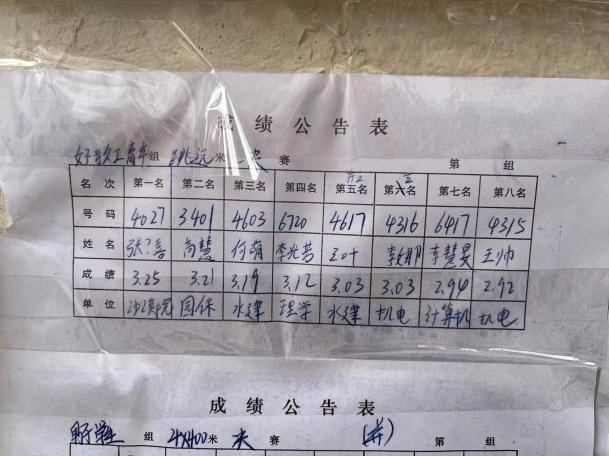 成绩公告表
女教工青年组 跳远米 决赛 第 组
并5 5
名次 第一名 第二名 第三名 第四名 第五名 第六名 第七名 第八名
号码 4027 3401 4603 6720 4617 4316 6417 4315
姓名 张 高慧 付萌 李光芸 王叶 李慧昊 王帅
成绩 3.25 3.21 3.19 3.12 3.03 3.03 2.94 2.92
单位 园保 水建 理学 水建 机电 计算机 机电
成绩公告表
男子学生组 4×400米 决赛 (并) 第 组